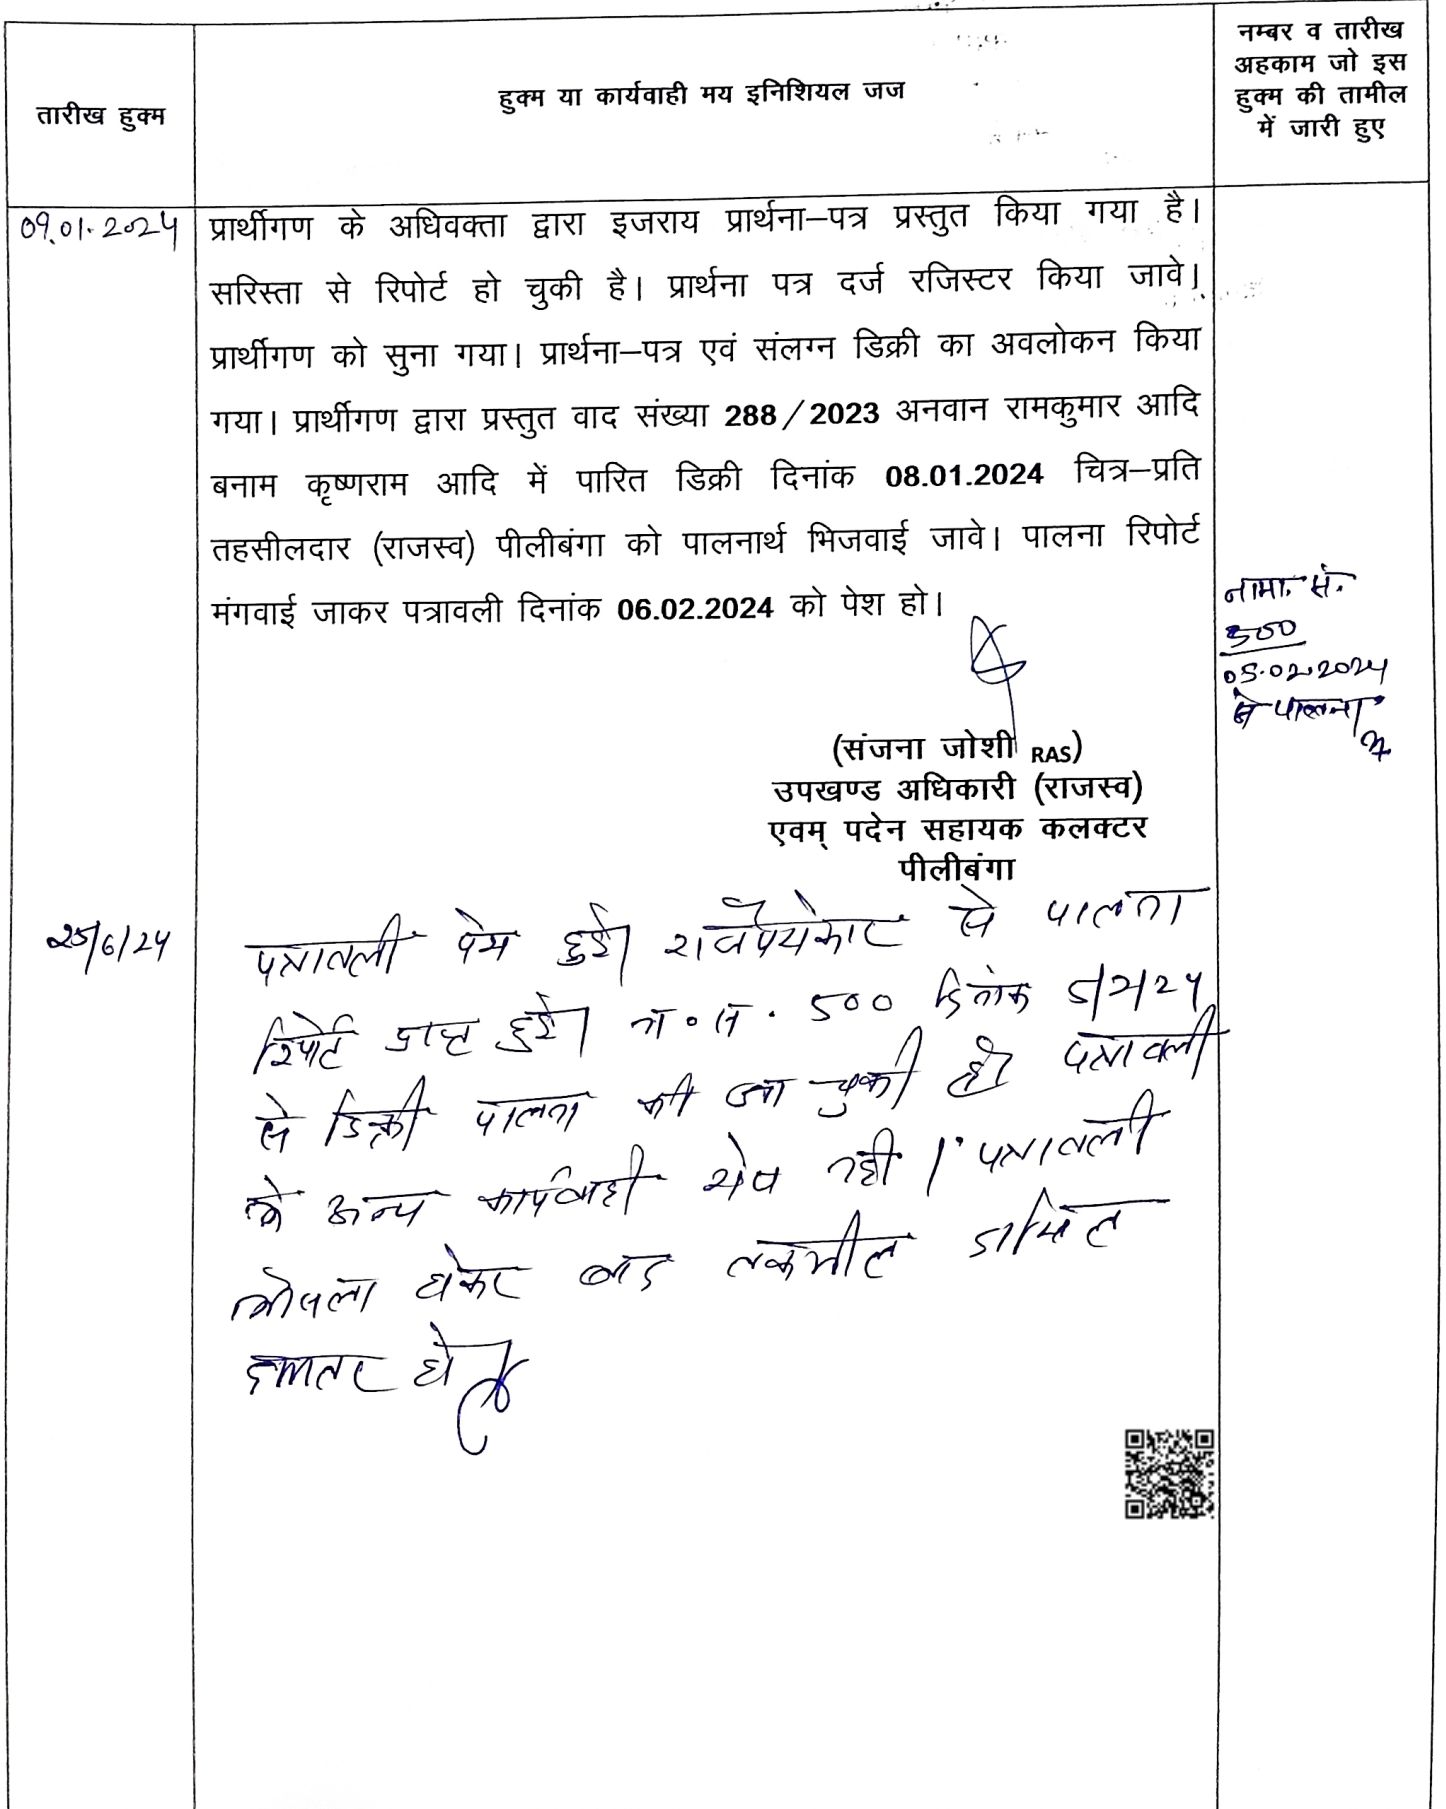 तारीख हुक्म
हुक्म या कार्यवाही मय इनिशियल जज
नम्बर व तारीख
अहकाम जो इस
हुक्म की तामील
में जारी हुए
09.01.2024
प्रार्थीगण के अधिवक्ता द्वारा इजराय प्रार्थना–पत्र प्रस्तुत किया गया है।
सरिस्ता से रिपोर्ट हो चुकी है। प्रार्थना पत्र दर्ज रजिस्टर किया जावे।
प्रार्थीगण को सुना गया। प्रार्थना–पत्र एवं संलग्न डिक्री का अवलोकन किया
गया। प्रार्थीगण द्वारा प्रस्तुत वाद संख्या 288/2023 अनवान रामकुमार आदि
बनाम कृष्णराम आदि में पारित डिक्री दिनांक 08.01.2024 चित्र–प्रति
तहसीलदार (राजस्व) पीलीबंगा को पालनार्थ भिजवाई जावे। पालना रिपोर्ट
मंगवाई जाकर पत्रावली दिनांक 06.02.2024 को पेश हो।
नामा. सं.
500
05.02.2024
से पालना
(संजना जोशी RAS)
उपखण्ड अधिकारी (राजस्व)
एवम् पदेन सहायक कलक्टर
पीलीबंगा
25/6/24
पत्रावली पेश हुई। से पालना
रिपोर्ट प्राप्त हुई। न.स. 500 दिनांक 5/2/24
से डिक्री पालना की जा चुकी है। पत्रावली
में अन्य कार्यवाही शेष नही। पत्रावली
फैसला होकर बाद तकमील दाखिल
दफ्तर हो